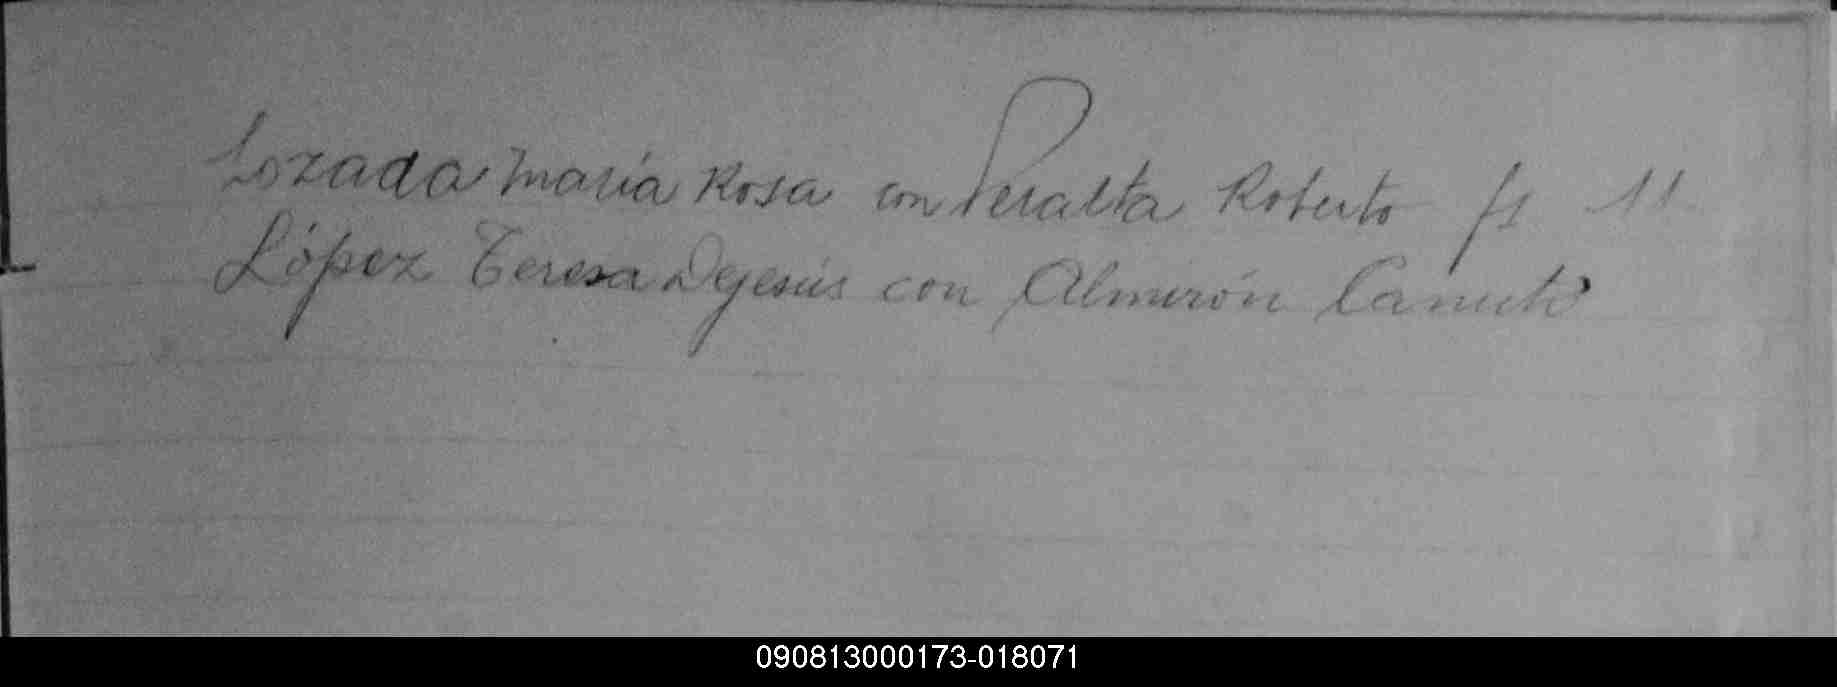 Lozada María Rosa con Peralta Roberto fs 11
López Teresa Dejesús con Almirón Canuto
090813000173-018071